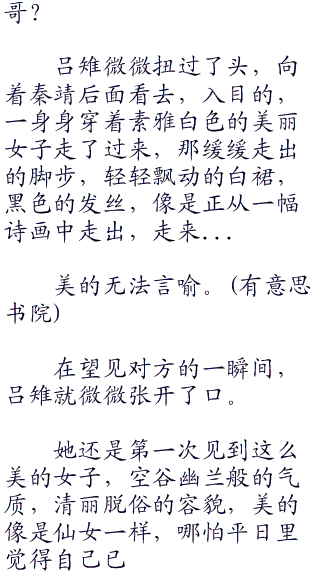 哥？
吕雉微微扭过了头，向
着秦靖后面看去，入目的，
一身身穿着素雅白色的美丽
女子走了过来，那缓缓走出
的脚步，轻轻飘动的白裙，
黑色的发丝，像是正从一幅
诗画中走出，走来...
美的无法言喻。(有意思
书院)
在望见对方的一瞬间，
吕雉就微微张开了口。
她还是第一次见到这么
美的女子，空谷幽兰般的气
质，清丽脱俗的容貌，美的
像是仙女一样，哪怕平日里
觉得自己已